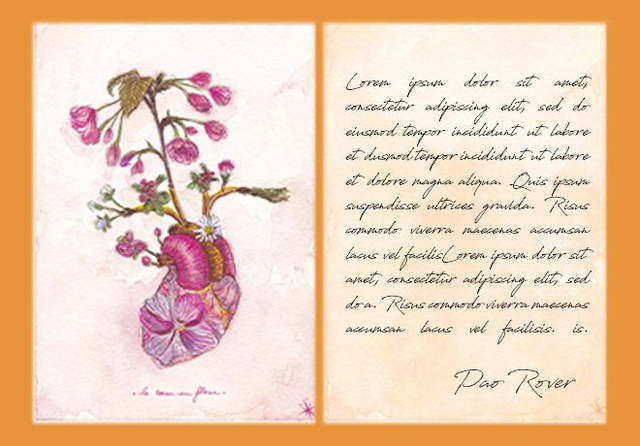 Lorem ipsum dolor sit amet,
consectetur adipiscing elit, sed do
eiusmod tempor incididunt ut labore
et dusmod tempor incididunt ut labore
et dolore magna aliqua. Quis ipsum
suspendisse ultrices gravida. Risus
commodo viverra maecenas accumsan
lacus vel facilisLorem ipsum dolor sit
amet, consectetur adipiscing elit, sed
do a. Risus commodo viverra maecenas
accumsan lacus vel facilisis. is.
Pao Rover